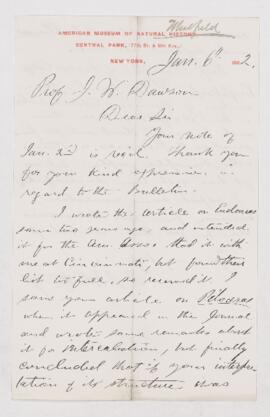 Whitfield
AMERICAN MUSEUM OF NATURAL HISTORY,
CENTRAL PARK, 77th St. & 8th Ave.,
NEW YORK, Jan. 6th 1882.
Prof J. W. Dawson
Dear Sir
Your note of
Jan. 2nd is rec'd. Thank you
for your kind expression in
regard to the Bulletin.
I wrote the article on
some two years ago, and intended
it for the Am. Asso. Had it with
me at Cincinnati, but found their
list too full, so reserved it. I
saw your article on
when it appeared in the Journal
and wrote some remarks about
it for intercalation, but finally
concluded that if your interpre-
tation of its structure was